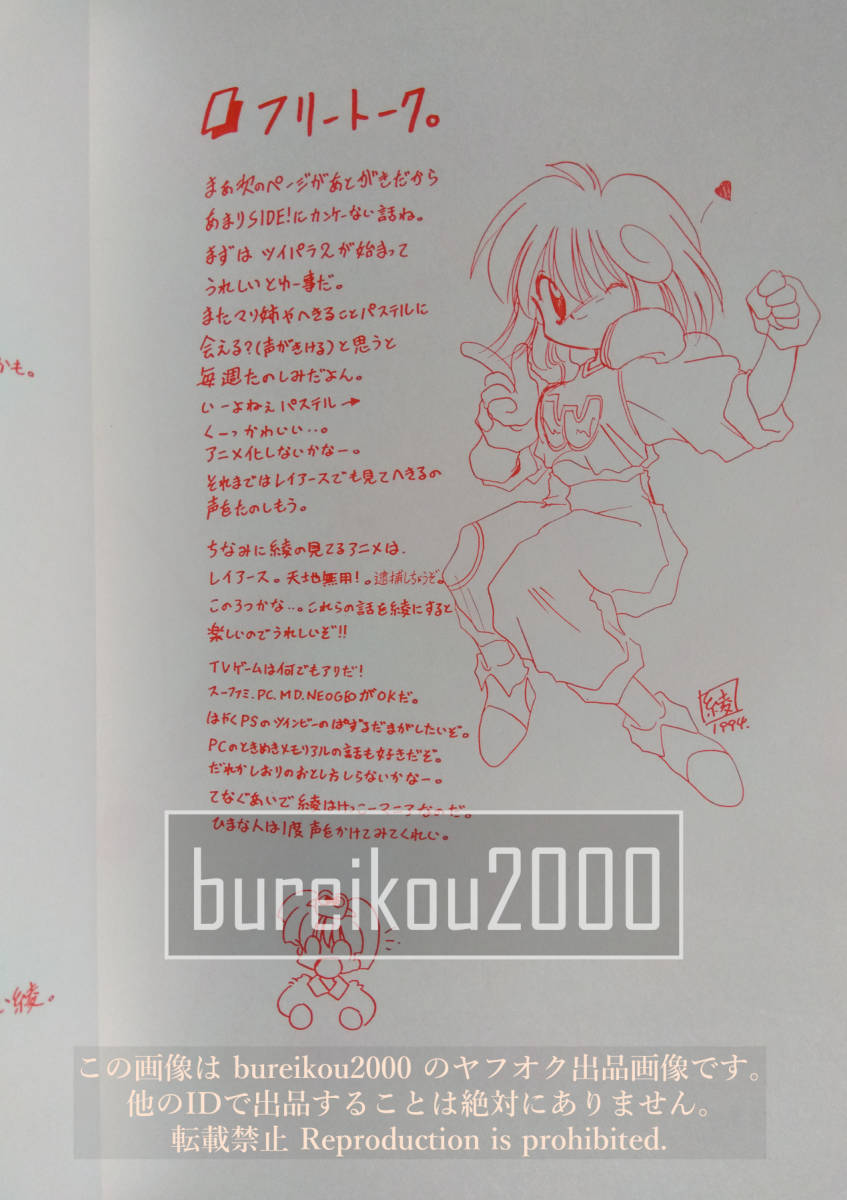 フリートーク。
まぁ次のページがあとがきだから
あまりSIDE!にカンケーない話ね。
まずは ツインパラ2が始まって
うれしいとゆー事だ。
またマリ姉やへきることパステルに
会える?(声がきける)と思うと
毎週たのしみだよん。
いーよねぇパステル→
くーっかわいい…。
アニメ化しないかなー。
それまではレイアースでも見てへきるの
声をたのしもう。
ちなみに綾の見てるアニメは、
レイアース。天地無用!。逮捕しちゃうぞ。
この3つかな…。これらの話を綾にすると
楽しいのでうれしいぞ!!
TVゲームは何でもアリだ!
スーファミ.PC.MD.NEOGEOがOKだ。
はやくPSのツインビーのぱずるだまがしたいぞ。
PCのときめきメモリアルの話も好きだぞ。
だれかしおりのおとし方しらないかなー。
てなぐあいで綾はけっこーマニアなのだ。
ひまな人は1度声をかけてみてくれい。
W
綾
1994.
かも。
い綾。
bureikou2000
この画像は bureikou2000 のヤフオク出品画像です。
他のIDで出品することは絶対にありません。
転載禁止 Reproduction is prohibited.